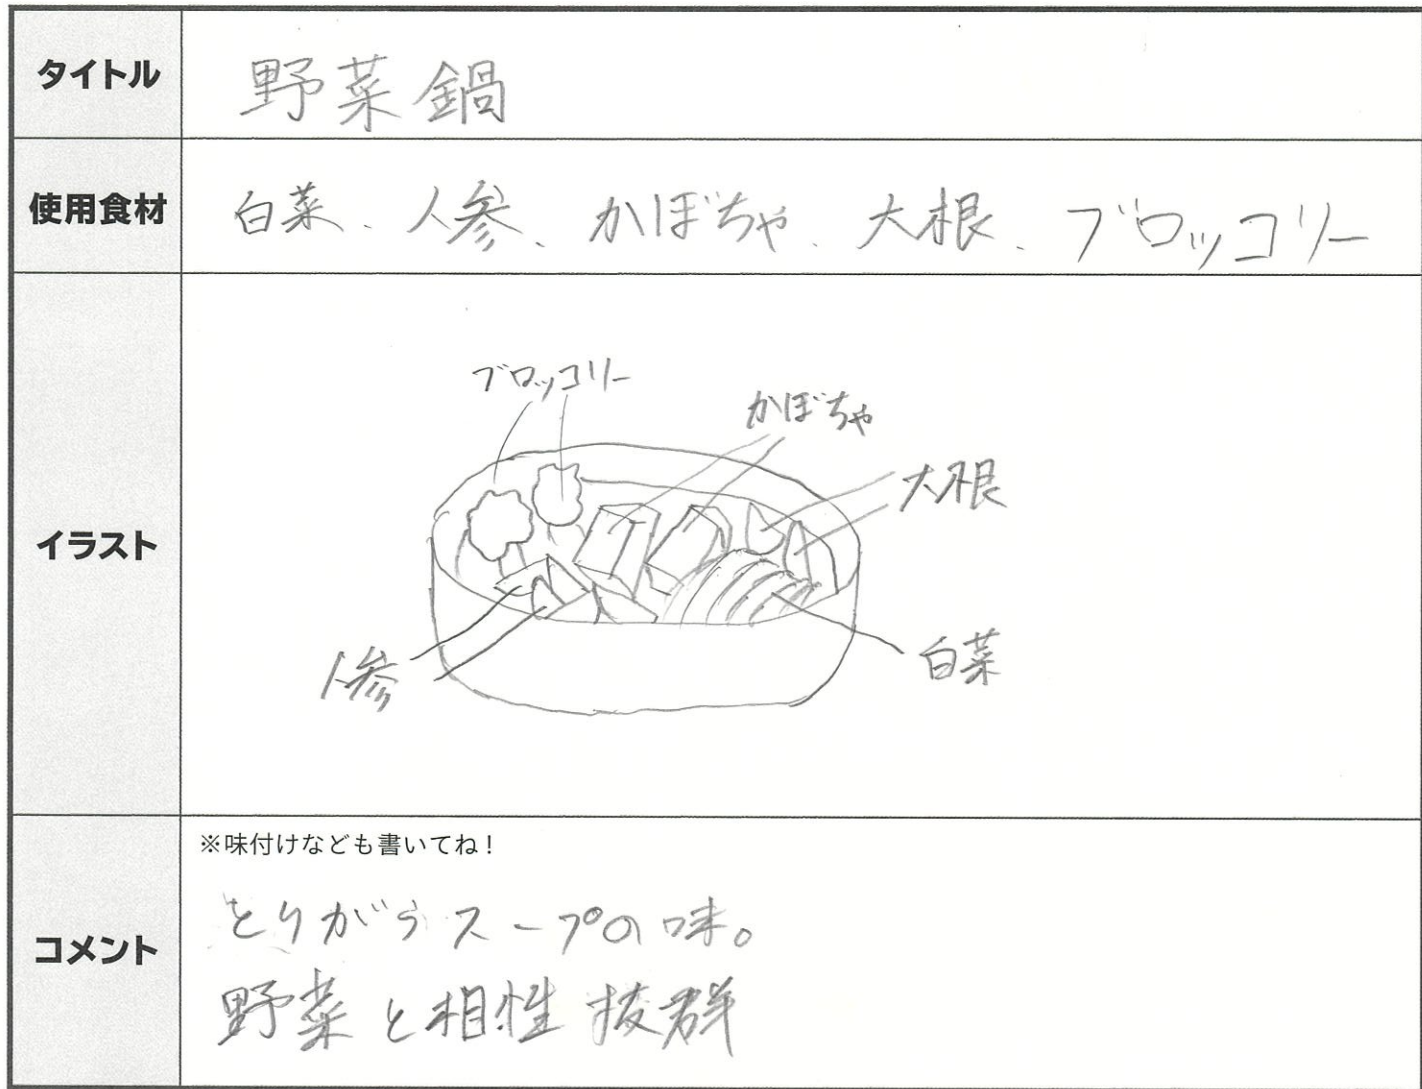 タイトル
野菜鍋
使用食材
白菜、人参、かぼちゃ、大根、ブロッコリー
イラスト
ブロッコリー
かぼちゃ
大根
人参
白菜
コメント
※味付けなども書いてね！
とりがらスープの味。
野菜と相性抜群